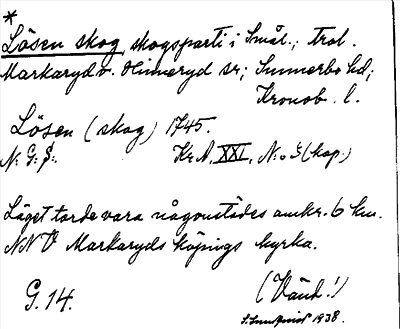 *
Lösen skog, skogsparti i Smål.; trol.
Markaryd o. Hinneryd sr; Sunnerbo hd;
Kronob. l.
Lösen (skog) 1745.
N: G: S:. Kr. A. XXI, N:o 3 (kop.)
Läget torde vara någonstädes omkr. 6 km.
NNV Markaryds köpings kyrka.
G. 14. (Vänd!)
1938.